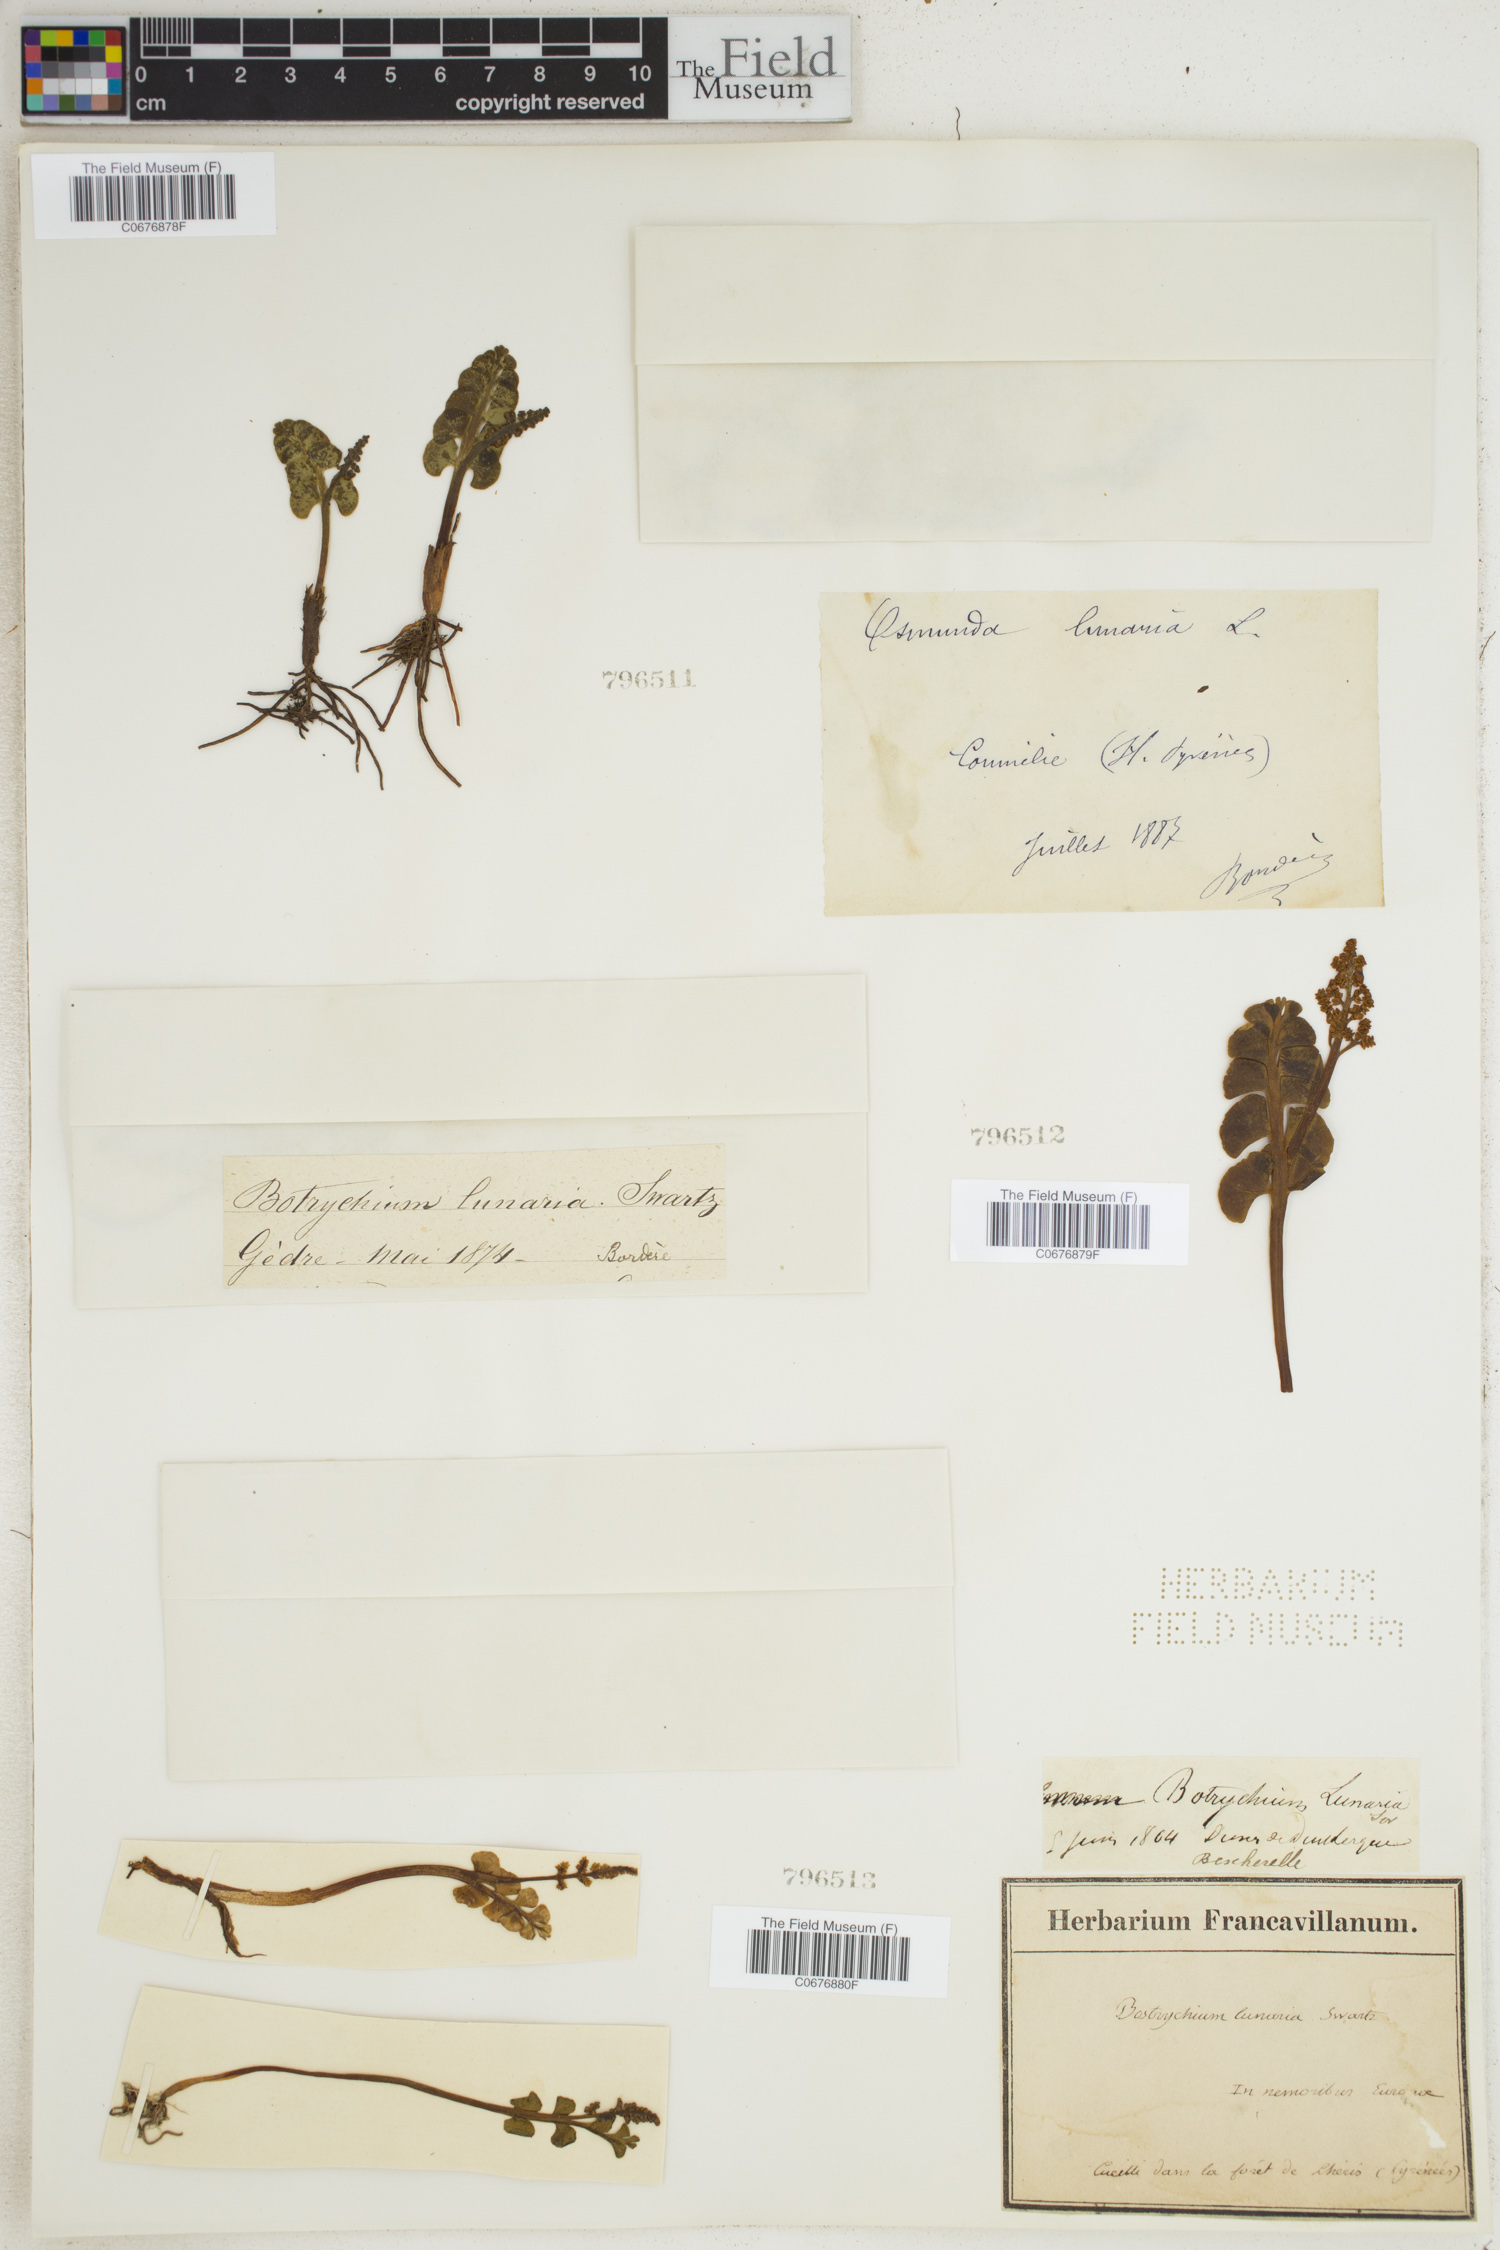 0 1 2 3 4 5 6 7 8 9 10
cm copyright reserved
The Field
Museum
The Field Museum (F)
C0676878F
Osmunda lunaria L.
796511
(H. Pyrénées)
Juillet 188
Bordère
796512
The Field Museum (F)
C0676879F
Botrychium lunaria. Swartz
Gèdre - Mai 1874 - Bordère
HERBARIUM
FIELD MUSEUM
Botrychium Lunaria
Sw
Juin 1864 Dunes de Dunkerque
Bescherelle
796513
The Field Museum (F)
C0676880F
Herbarium Francavillanum.
Bostrychium lunaria Swartz
In nemoribus Europae
Cueilli dans la forêt de Lhéris (Pyrénées)